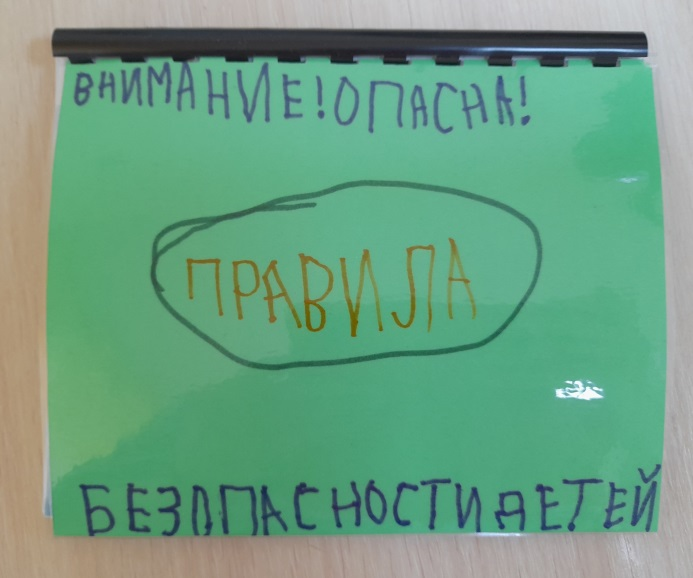 ВНИМАНИЕ! ОПАСНА!
ПРАВИЛА
БЕЗОПАСНОСТИ ДЕТЕЙ